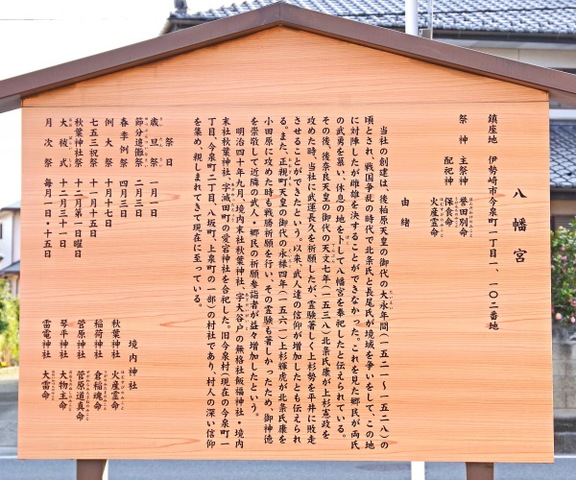 八幡宮
鎮座地 伊勢崎市今泉町一丁目一、一〇二番地
祭神 主祭神 誉田別命
配祀神 保食命
火産霊命
由緒
当社の創建は、後柏原天皇の御代の大永年間(一五二一〜一五二八)の
頃とされ、戦国争乱の時代で北条氏と長尾氏が境域を争いをして、この地
に対陣したが雌雄を決することができなかった。これを見た郷民が両氏
の武勇を慕い、休息の地を卜して八幡宮を奉祀したと伝えられている。
その後、後奈良天皇の御代の天文七年(一五三八)北条氏康が上杉憲政を
攻めた時、当社に武運長久を祈願したが、霊験著しく上杉勢を平井に敗走
させることができたという。以来、武人達の信仰が増加したとも伝えられ
る。また、正親町天皇の御代の永禄四年(一五六一)上杉輝虎が北条氏康を
小田原に攻めた時も戦勝祈願を行い、その霊験も著しかったため、御神徳
を崇敬して近隣の武人・郷民の祈願参詣者が益々増加したという。
明治四十年九月、境内末社秋葉神社、字大谷戸の無格社飯福神社・境内
末社秋葉神社、字減田町の愛宕神社を合祀した。旧今泉村(現在の今泉町一
丁目、今泉町二丁目、八坂町、上泉町の一部)の村社であり、村人の深い信仰
を集め、親しまれてきて現在に至っている。
祭日
歳旦祭 一月一日
節分追儺祭 二月三日
春季例祭 四月三日
例大祭 十月十七日
七五三祝祭 十一月十五日
秋葉神社祭 十二月第一日曜日
大祓式 十二月三十一日
月次祭 毎月一日・十五日
境内神社
秋葉神社 火産霊命
稲荷神社 倉稲魂命
菅原神社 菅原道真命
琴平神社 大物主命
雷電神社 大雷命